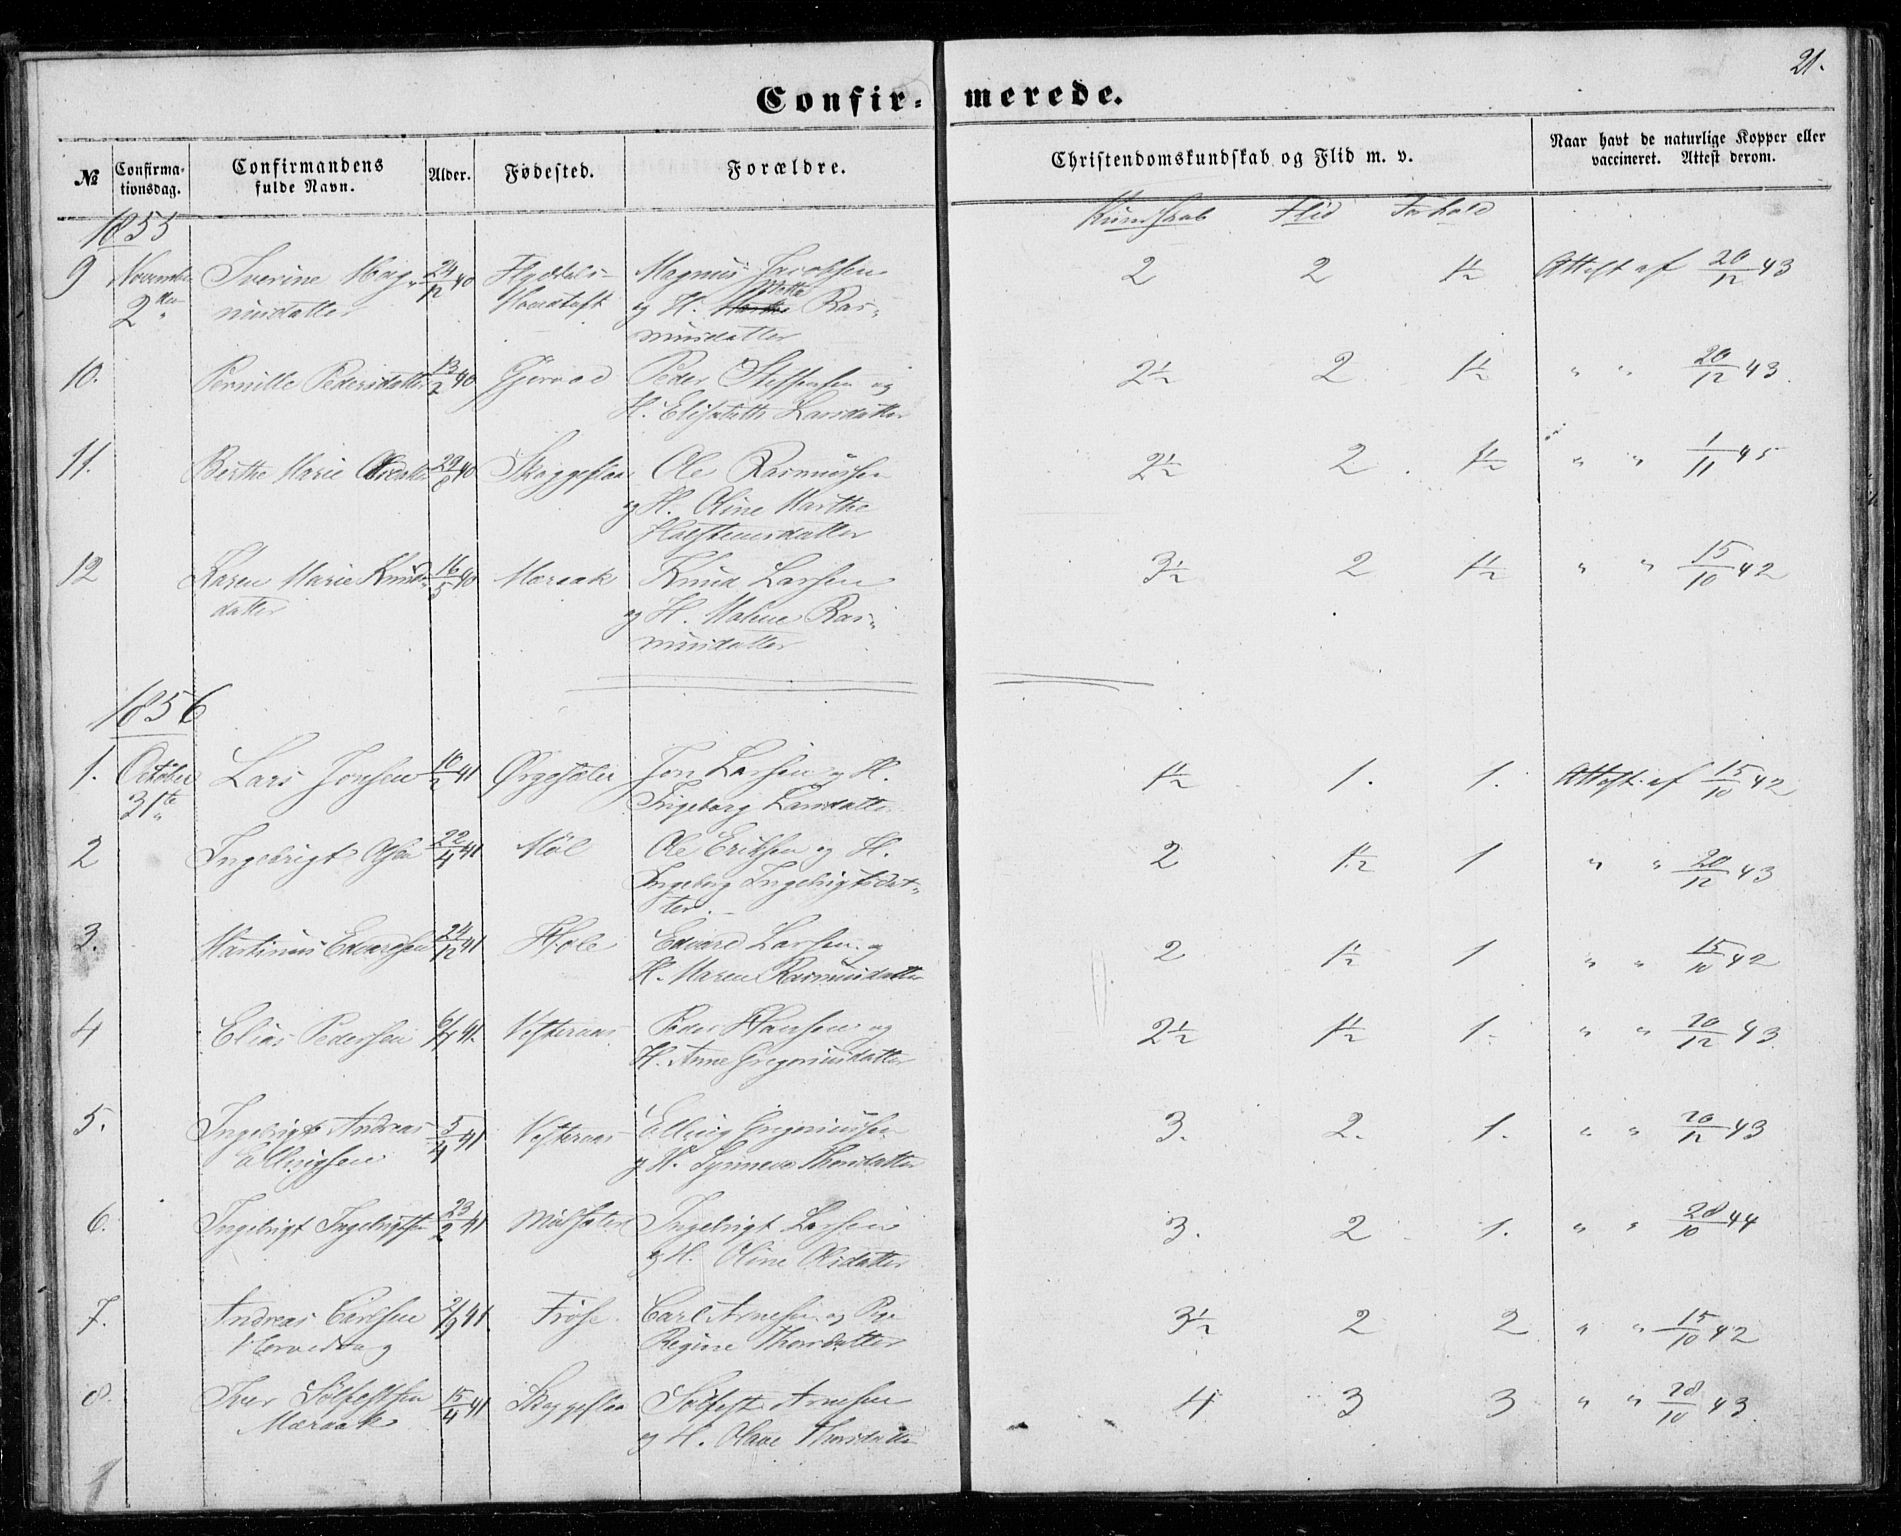 21.
Confir- merede.
№ Confirma-tionsdag. Confirmandens fulde Navn. Alder. Fødested. Forældre. Christendomskundskab og Flid m. v. Naar havt de naturlige Kopper eller vaccineret. Attest derom.
1855 Kundskab Flid Forhold
9 November Severine Mag- 24/12 40 Magnus Jacobsen 2 2 1½ Attest af 20/12 43
2den nusdatter og H. Ras-
musdatter
10. Pernille Pedersdatter 13/2 40 Peder Steffensen og 2½ 2 1½ " " 20/12 43.
H. Elisabeth Larsdatter
11. Berthe Marie Olesdatter 29/8 40 Skaggeflaa Ole Rasmussen 2½ 2 1½ " " 1/11 45
og H. Oline Marthe
Halstensdatter
12 Karen Marie Knuds- 16/5 40 Meraak Knud Larsen 3½ 2 1½ " " 15/10 42
datter og H. Malene Ras-
musdatter
1856
1. October Lars Jonsen 10/2 41 Ørgesæter Jon Larsen og H. 1½ 1. 1. Attest af 15/10 42
31te Ingeborg Larsdatter
2 Ingebrigt Olsen 22/4 41 Møl Ole Eriksen og H. 2 1½ 1 " " 20/12 43
Ingeborg Ingebrigtsdat-
ter.
3. Martinus Edvardsen 24/12 41 Hole Edvard Larsen og 2 1½ 1 " " 15/10 42
H. Maren Rasmusdatter
4 Elias Pedersen 41. Vesteraas Peder Hansen og 2½ 1½ 1. " " 20/12 43.
H. Anne Gregoriusdatter
5. Ingebrigt Andreas 5/4 41 Vesteraas Elling Gregoriussen 3. 2. 1. " " 20/12 43
Ellingsen og H. Synneve Thorsdatter
6. Ingebrigt Ingebrigtsen 23/2 41 Mølsæter Ingebrigt Larsen 3. 2 1. " " 28/10 44
og H. Oline Olsdatter
7. Andreas Carlsen 41. Frøse Carl Arnesen og 3½ 2 2 " " 15/10 42
Regine Thorsdatter
8. Iver Sølfestsen 15/4 41 Skaggeflaa Sølfest Arnesen 4 3 3 " " 28/10 43.
Meraak og H. Olave Thorsdatter